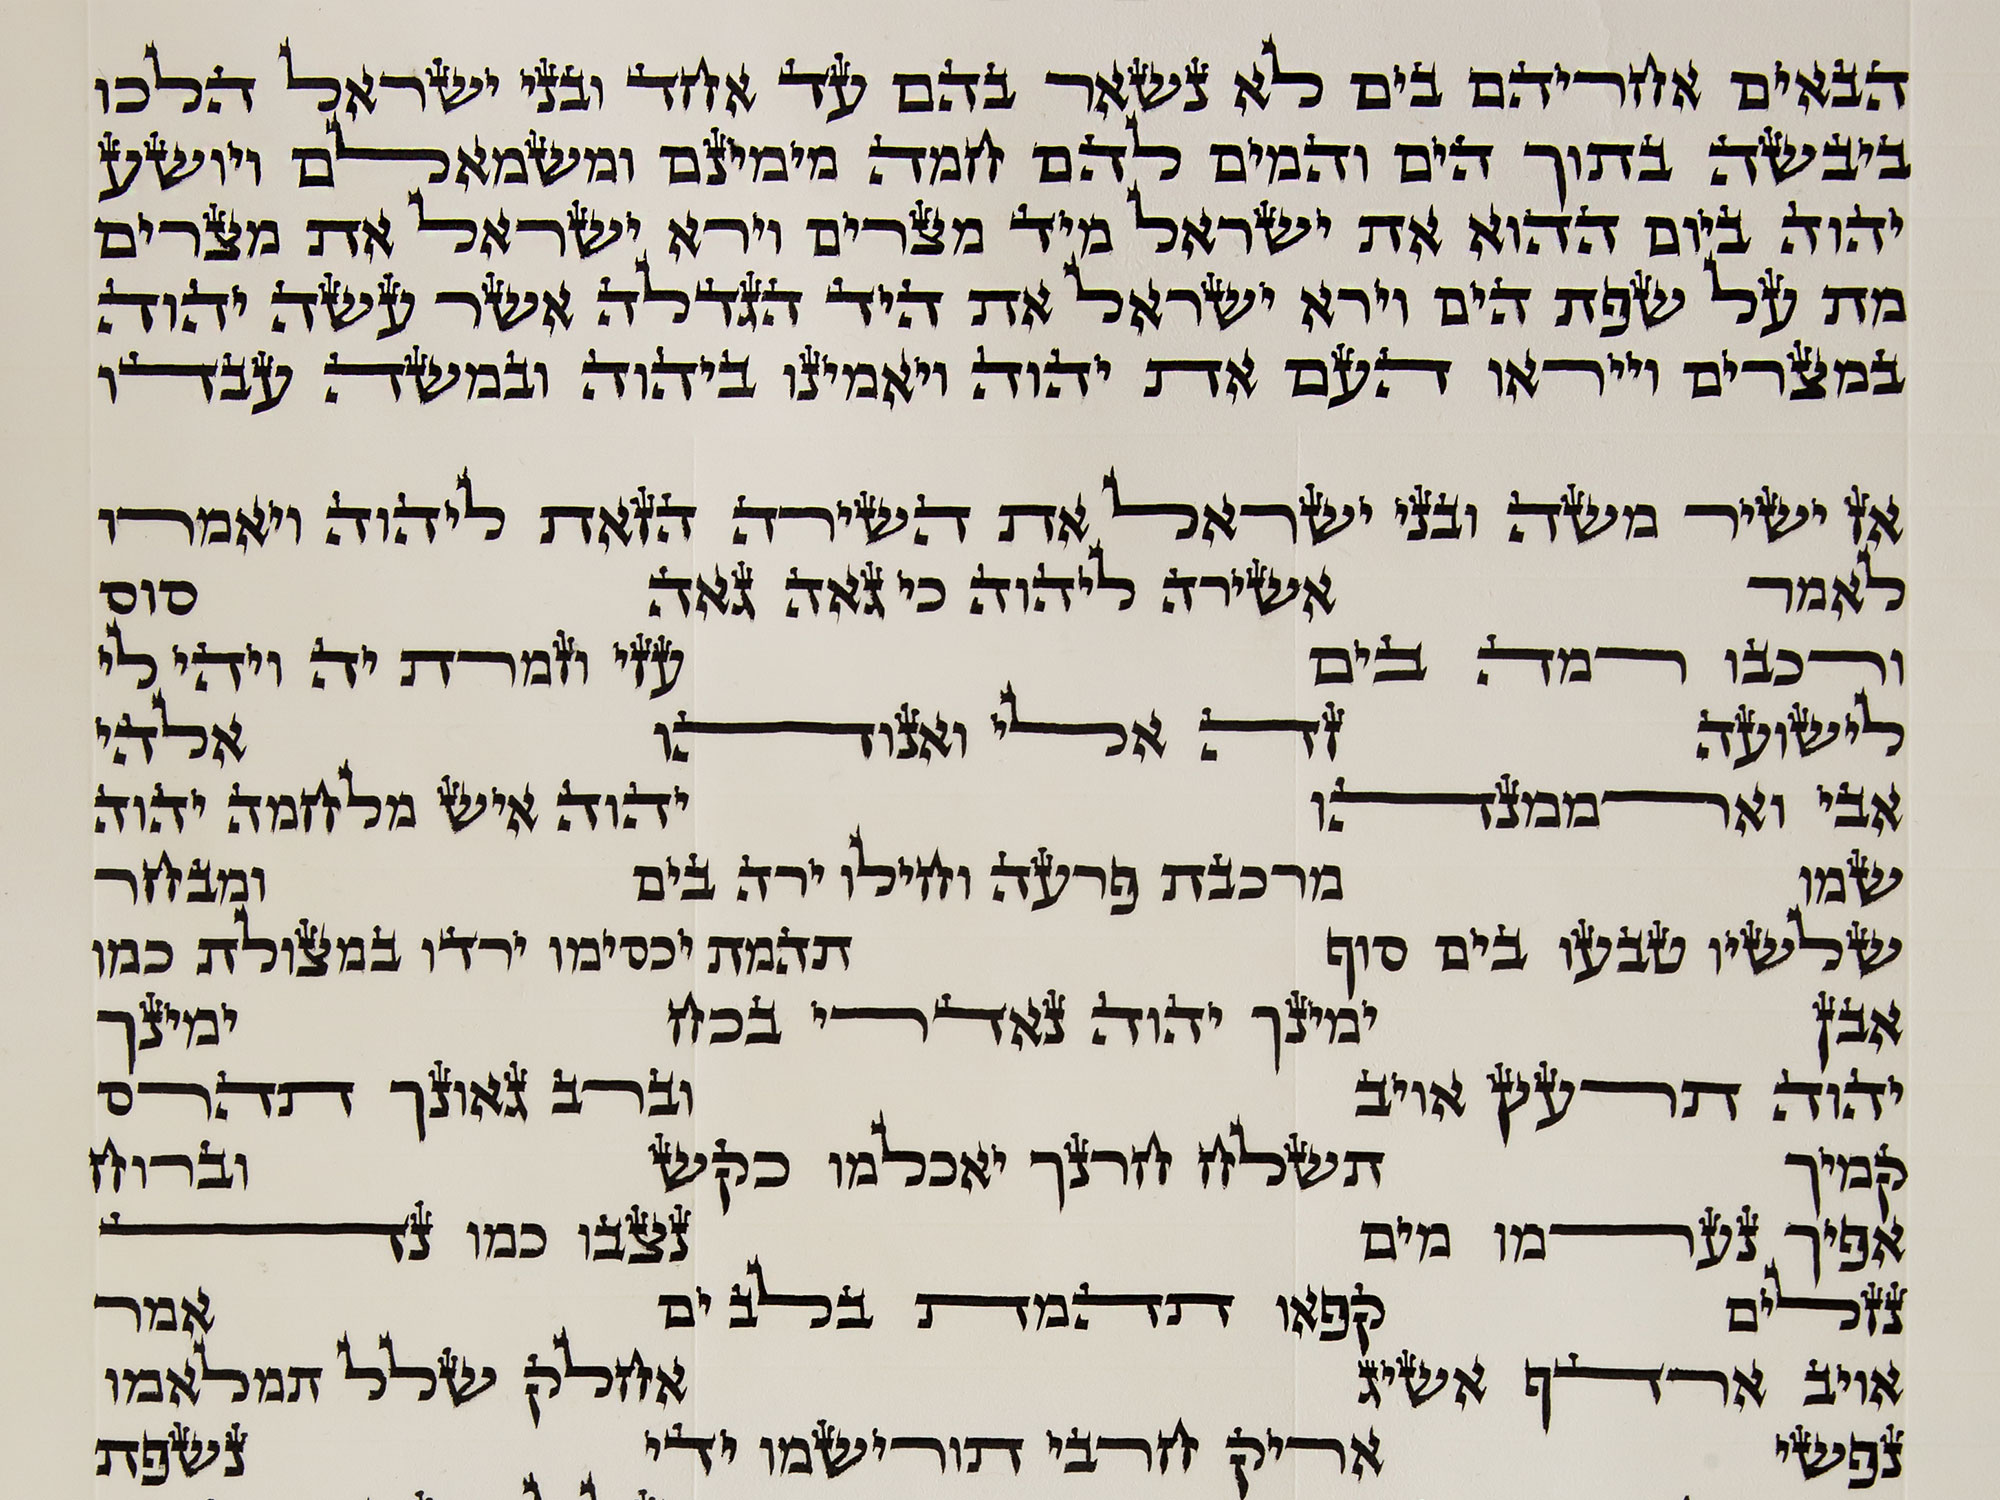 הבאים אחריהם בים לא נשאר בהם עד אחד ובני ישראל הלכו
ביבשה בתוך הים והמים להם חמה מימינם ומשמאלם ויושע
יהוה ביום ההוא את ישראל מיד מצרים וירא ישראל את מצרים
מת על שפת הים וירא ישראל את היד הגדלה אשר עשה יהוה
במצרים וייראו העם את יהוה ויאמינו ביהוה ובמשה עבדו
אז ישיר משה ובני ישראל את השירה הזאת ליהוה ויאמרו
לאמר אשירה ליהוה כי גאה גאה סוס
ורכבו רמה בים עזי וזמרת יה ויהי לי
לישועה זה אלי ואנוהו אלהי
אבי וארממנהו יהוה איש מלחמה יהוה
שמו מרכבת פרעה וחילו ירה בים ומבחר
שלשיו טבעו בים סוף תהמת יכסימו ירדו במצולת כמו
אבן ימינך יהוה נאדרי בכח ימינך
יהוה תרעץ אויב וברב גאונך תהרס
קמיך תשלח חרנך יאכלמו כקש וברוח
אפיך נערמו מים נצבו כמו נד
נזלים קפאו תהמת בלב ים אמר
אויב ארדף אשיג אחלק שלל תמלאמו
נפשי אריק חרבי תורישמו ידי נשפת